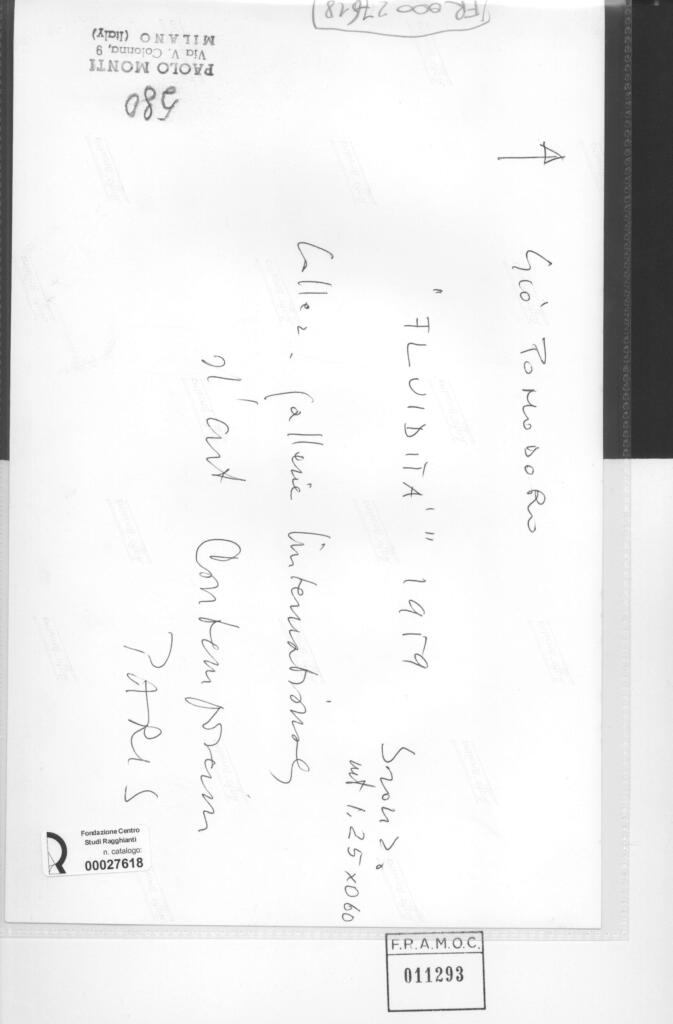 FR 00027618
PAOLO MONTI
Via V. Colonna, 9
MILANO (Italy)
580
Giò POMODORO
"FLUIDITÀ" 1959
mt 1,25 x 060
Gallerie Internationale
d'art Contemporain
PARIS
Fondazione Centro
Studi Ragghianti
n. catalogo:
00027618
F.R.A.M.O.C.
011293